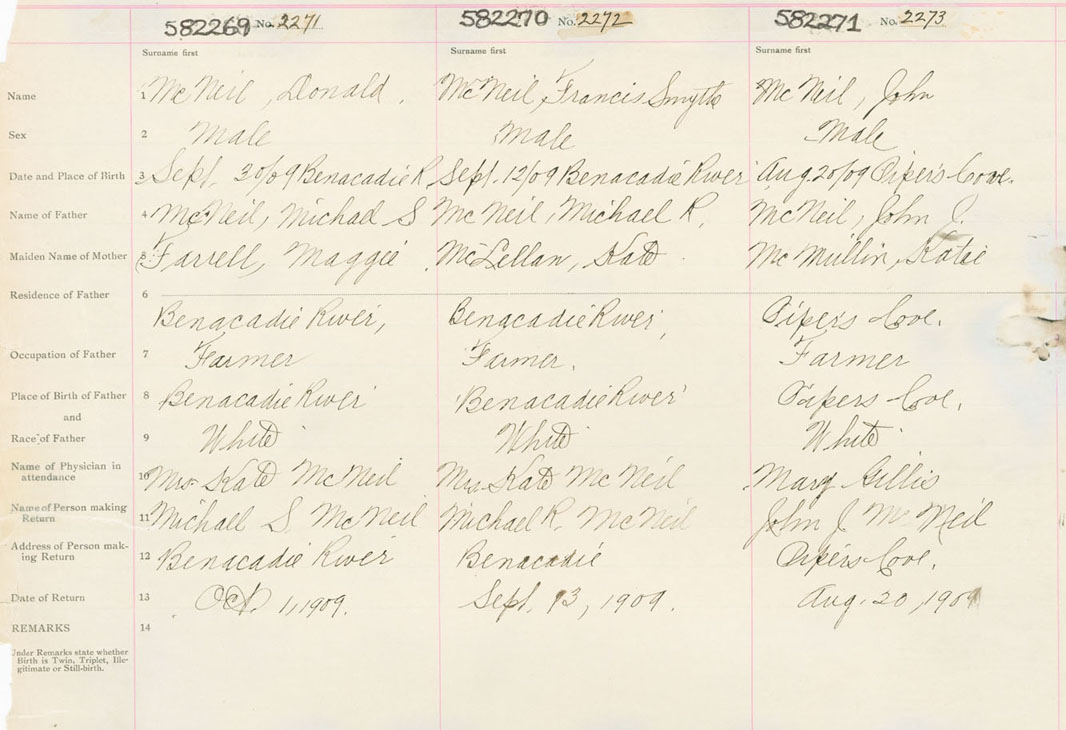 582269 No. 2271 582270 No. 2272 582271 No. 2273
Surname first Surname first Surname first
Name 1 McNeil, Donald. McNeil, Francis Smyth McNeil, John
Sex 2 Male Male Male
Date and Place of Birth 3 Sept. 30/09 Benacadie R. Sept. 12/09 Benacadie River Aug. 20/09 Pipers Cove.
Name of Father 4 McNeil, Michael S McNeil, Michael R. McNeil, John J.
Maiden Name of Mother 5 Farrell, Maggie McLellan, Kate McMullin, Katie
Residence of Father 6
Benacadie River, Benacadie River, Pipers Cove.
Occupation of Father 7 Farmer Farmer. Farmer
Place of Birth of Father 8 Benacadie River Benacadie River Pipers Cove.
and
Race of Father 9 White White White
Name of Physician in
attendance 10 Mrs. Kate McNeil Mrs. Kate McNeil Mary Gillis
Name of Person making
Return 11 Michael S. McNeil Michael R. McNeil John J. McNeil
Address of Person mak-
ing Return 12 Benacadie River Benacadie Pipers Cove.
Date of Return 13 Oct 1, 1909. Sept. 13, 1909. Aug. 20, 1909
REMARKS 14
Under Remarks state whether
Birth is Twin, Triplet, Ille-
gitimate or Still-birth.